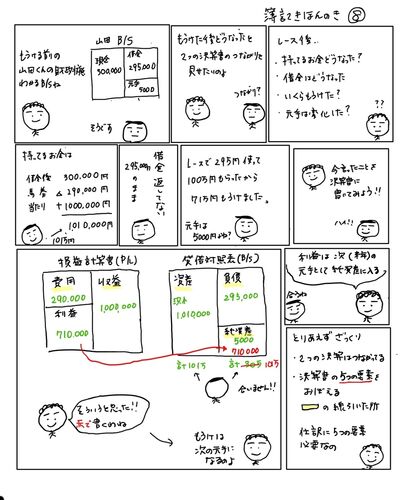 簿記きほんのき ⑧
もうける前の
山田くんの財政状態
わかるB/Sね
山田 B/S
現金
300,000
借金
295,000
元手
5000
そうです
もうけた後どうなったと
2つの決算書のつながりを
見せたいのよ
つながり?
レース後..
・持ってるお金どうなった?
・借金はどうなった
・いくらもうけた?
・元手は変化した?
??
持ってるお金は
借金後 300,000円
馬券 △290,000円
当たり +1,000,000円
1,010,000円
101万円
借金返してない
295,000円
のまま
レースで295円使って
100万円もらったから
71万円もうけました。
元手は
5000円よね?
今言ったことを
決算書に
書いてみよう!!
ハイ!!
損益計算書(P/L)
費用
290,000
利益
710,000
収益
1,000,000
貸借対照表(B/S)
資産
現金
1,010,000
負債
295,000
純資産
5000
710,000
計101万
計 305 101万
合いません!!
そういうと思った!!
赤で書くわね
もうけは
次の元手に
なるのよ
利益は次(来年)の
元手として純資産に入る
とりあえずざっくり
・2つの決算はつながってる
・決算書の5つの要素を
おぼえる
の線引いた所
仕訳に5つの要素
必要なの